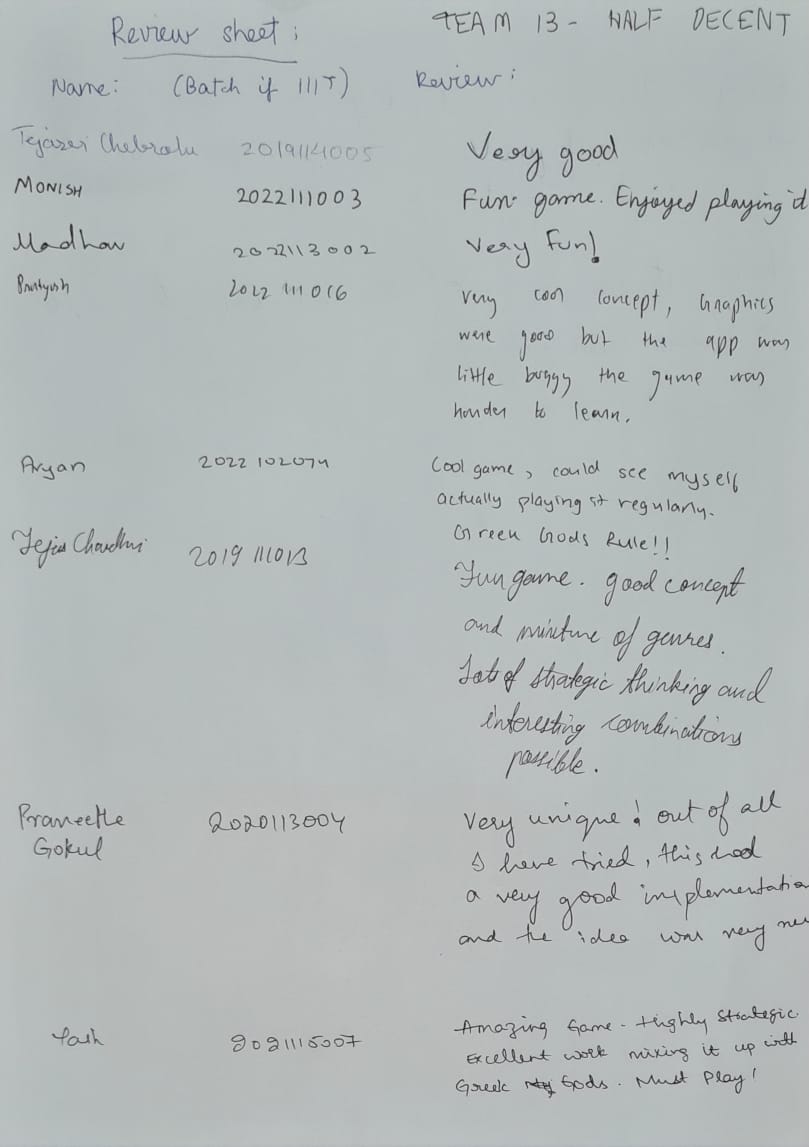 Review sheet:
TEAM 13 - HALF DECENT
Name: (Batch if IIIT) Review:
Tejasvi Chebrolu 2019114005 Very good
MONISH 2022111003 Fun game. Enjoyed playing it
Madhav 2022113002 Very Fun!
Pratyush 2022 111016 Very cool concept, Graphics
were good but the app was
little buggy the game was
harder to learn.
Aryan 2022 102074 Cool game, could see myself
actually playing it regularly.
Greek Gods Rule!!
Tejas Chaudhri 2019 111013 Fun game. good concept
and mixture of genres.
Lots of strategic thinking and
interesting combinations
possible.
Praneetha 2020113004 Very unique! out of all
Gokul I have tried, this had
a very good implementation
and the idea was very
Yash 2021115007 Amazing Game - Highly Strategic.
Excellent work mixing it up with
Greek Gods. Must Play!